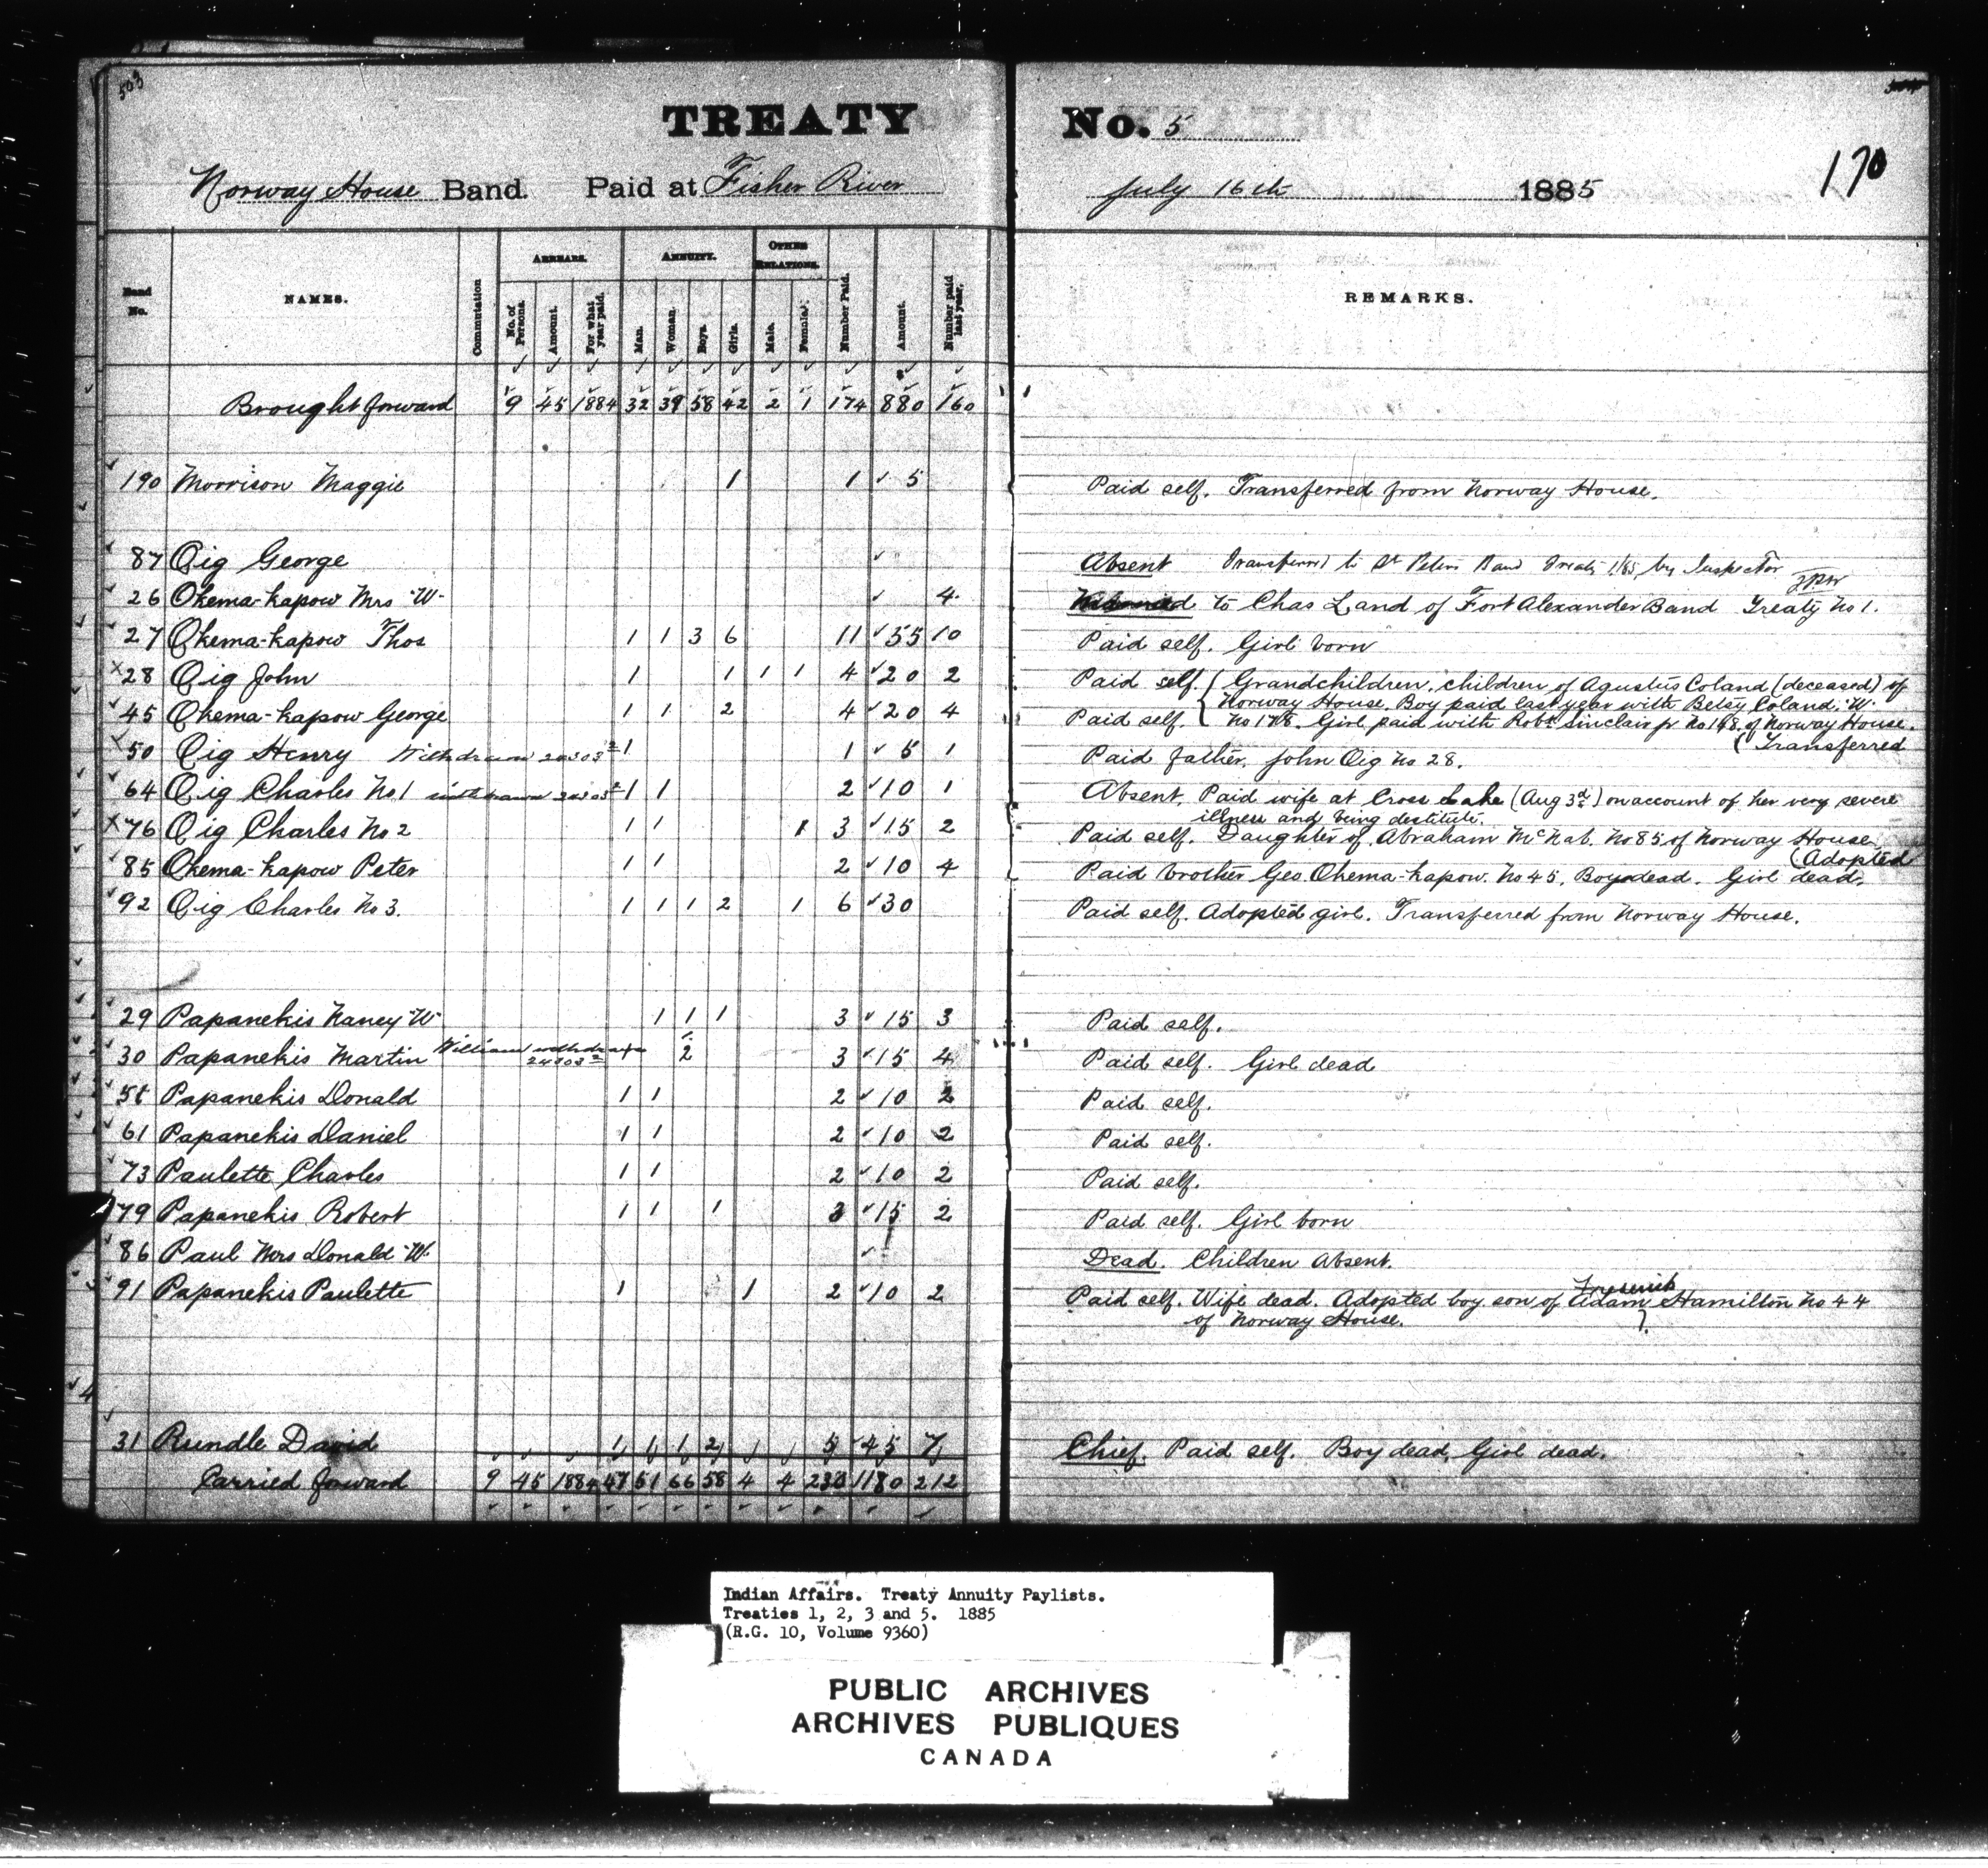 503
TREATY No. 5
170
Norway House Band. Paid at Fisher River July 16th 1885
Band No. NAMES. Commutation ARREARS. No. of Persons. Amount. For what year paid. ANNUITY. Man. Woman. Boys. Girls. OTHER RELATIONS. Male. Female. Number Paid. Amount. Number paid last year. REMARKS.
Brought forward 9 45 1884 32 39 58 42 2 1 174 880 160
190 Morrison Maggie 1 1 5 Paid self. Transferred from Norway House.
87 Oig George Absent Transferred to St Peters Band Treaty 1/85 by Inspector
26 Okema-kapow Mrs "W" 4 to Chas Land of Fort Alexander Band Treaty No 1.
27 Okema-kapow Thos 1 1 3 6 11 55 10 Paid self. Girl born
28 Oig John 1 1 1 1 4 20 2 Paid self. (Grandchildren, children of Agustus Coland (deceased) of
Norway House. Boy paid last year with Betsy Coland. "W"
45 Okema-kapow George 1 1 2 4 20 4 Paid self. No 178. Girl paid with Robt Sinclair jr No 148 of Norway House.
(Transferred
50 Oig Henry Withdrawn 24303/2 1 1 5 1 Paid father, John Oig No 28.
64 Oig Charles No 1 withdrawn 24303/2 1 1 2 10 1 Absent, Paid wife at Cross Lake (Aug 3d) on account of her very severe
illness and being destitute.
76 Oig Charles No 2 1 1 1 3 15 2 Paid self. Daughter of Abraham McNab. No 85 of Norway House
(Adopted
85 Okema-kapow Peter 1 1 2 10 4 Paid brother Geo. Okema-kapow. No 45. Boy dead. Girl dead.
92 Oig Charles No 3. 1 1 1 2 1 6 30 Paid self. Adopted girl. Transferred from Norway House.
29 Papanekis Nancy "W" 1 1 1 3 15 3 Paid self.
30 Papanekis Martin William withdrawn 24303/2 2 3 15 4 Paid self. Girl dead
Papanekis Donald 1 1 2 10 2 Paid self.
61 Papanekis Daniel 1 1 2 10 2 Paid self.
73 Paulette Charles 1 1 2 10 2 Paid self.
79 Papanekis Robert 1 1 1 3 15 2 Paid self. Girl born
86 Paul Mrs Donald "W" Dead. Children Absent.
Frederick
91 Papanekis Paulette 1 1 2 10 2 Paid self. Wife dead. Adopted boy son of Adam Hamilton No 44
of Norway House.
31 Rundle David 1 1 1 2 5 45 7 Chief. Paid self. Boy dead, Girl dead.
Carried forward 9 45 1884 47 51 66 58 4 4 230 1180 212
Indian Affairs. Treaty Annuity Paylists.
Treaties 1, 2, 3 and 5. 1885
(R.G. 10, Volume 9360)
PUBLIC ARCHIVES
ARCHIVES PUBLIQUES
CANADA